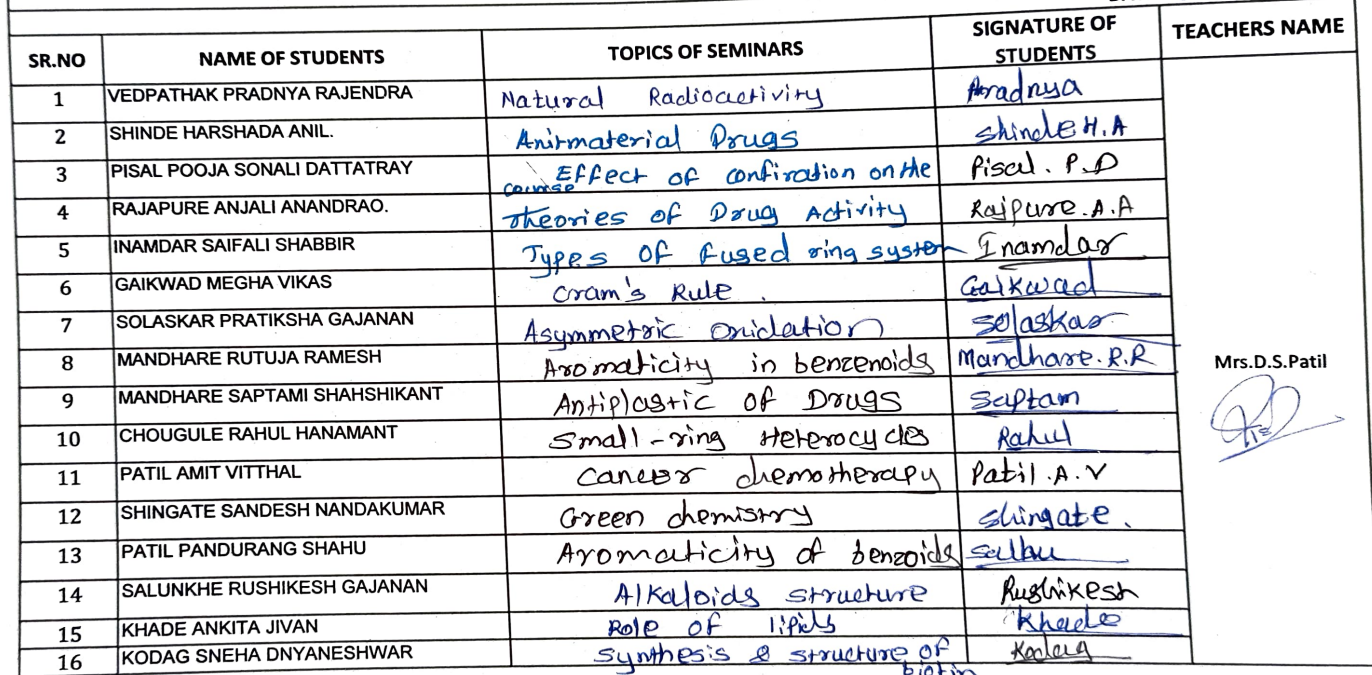 SR.NO NAME OF STUDENTS TOPICS OF SEMINARS SIGNATURE OF STUDENTS TEACHERS NAME
1 VEDPATHAK PRADNYA RAJENDRA Natural Radioactivity Pradnya
2 SHINDE HARSHADA ANIL. Anitmaterial Drugs Shinde H.A
3 PISAL POOJA SONALI DATTATRAY Effect of confiration on the course Pisal. P.D
4 RAJAPURE ANJALI ANANDRAO. Theories of Drug Activity Rajpure.A.A
5 INAMDAR SAIFALI SHABBIR Types of fused ring system Inamdar
6 GAIKWAD MEGHA VIKAS Cram's Rule. Gaikwad
7 SOLASKAR PRATIKSHA GAJANAN Asymmetric Oxidation Solaskar
8 MANDHARE RUTUJA RAMESH Aromaticity in benzenoids Mandhare.R.R
Mrs.D.S.Patil
9 MANDHARE SAPTAMI SHAHSHIKANT Antiplastic of Drugs Saptam
10 CHOUGULE RAHUL HANAMANT Small-ring Heterocycles Rahul
11 PATIL AMIT VITTHAL Cancer chemotherapy Patil.A.V
12 SHINGATE SANDESH NANDAKUMAR Green chemistry Shingate.
13 PATIL PANDURANG SHAHU Aromaticity of benzoids
14 SALUNKHE RUSHIKESH GAJANAN Alkaloids structure Rushikesh
15 KHADE ANKITA JIVAN Role of lipids Khade
16 KODAG SNEHA DNYANESHWAR Synthesis & structure of biotin Kodag